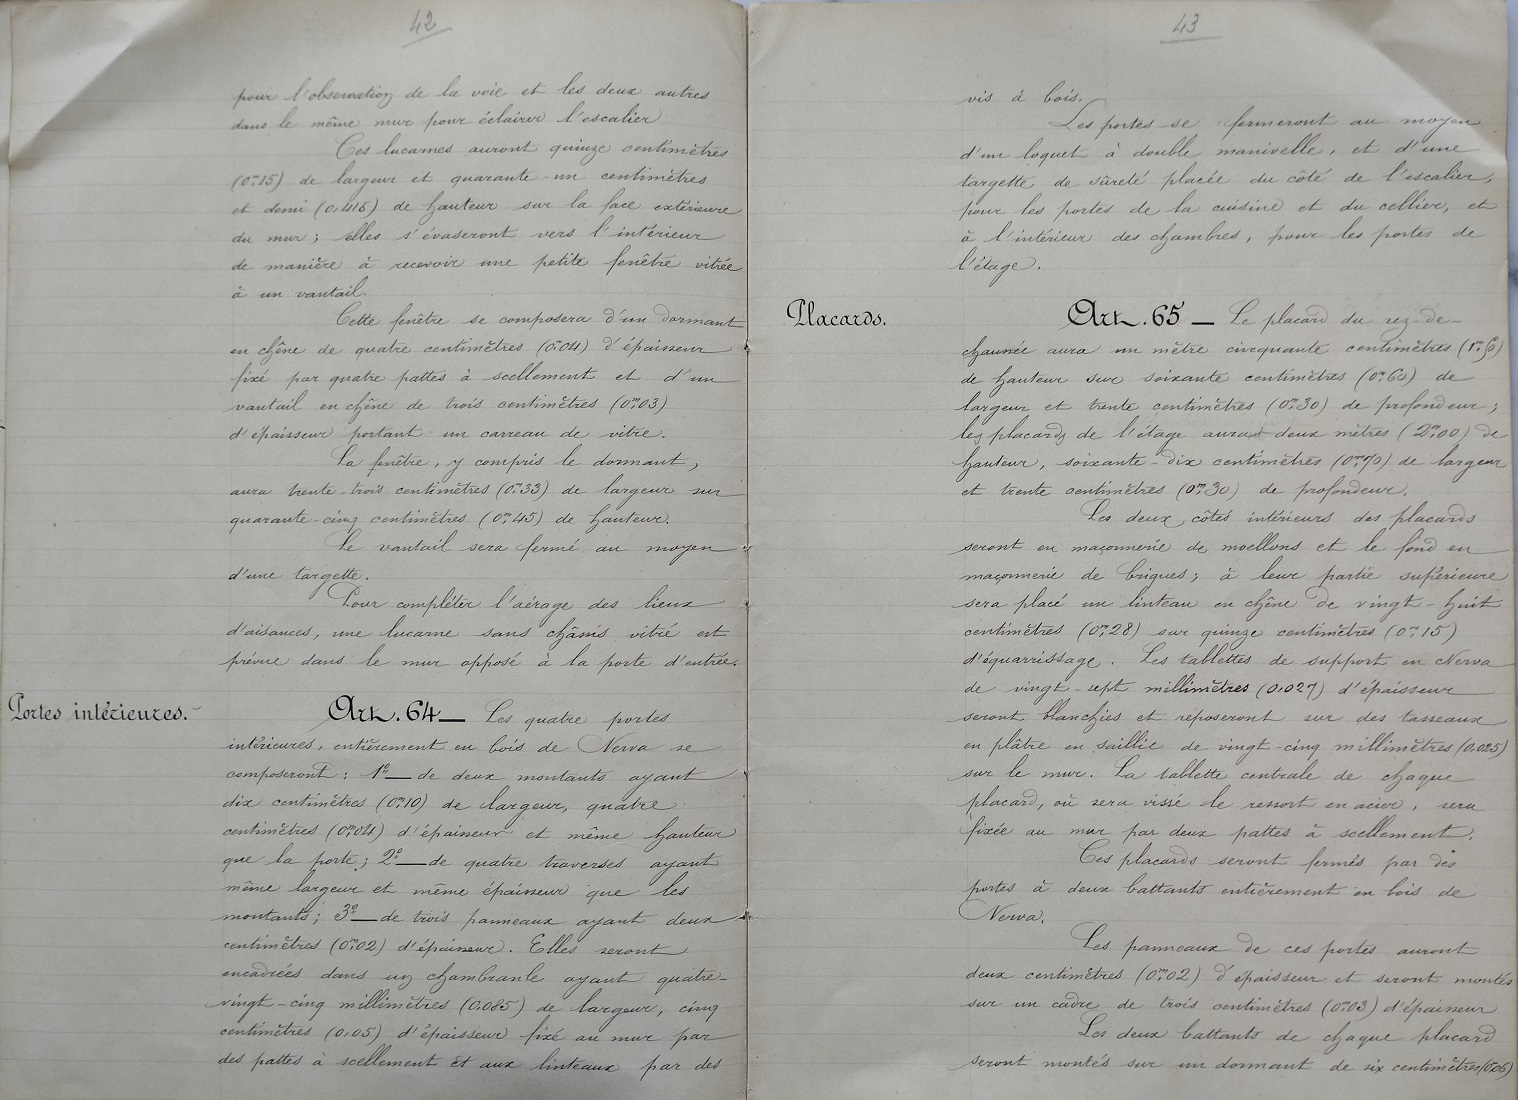 42
pour l'observation de la voie et les deux autres
dans le même mur pour éclairer l'escalier
Ces lucarnes auront quinze centimètres
(0m15) de largeur et quarante-un centimètres
et demi (0,415) de hauteur sur la face extérieure
du mur ; elles s'évaseront vers l'intérieur
de manière à recevoir une petite fenêtre vitrée
à un vantail.
Cette fenêtre se composera d'un dormant
en chêne de quatre centimètres (0m04) d'épaisseur
fixé par quatre pattes à scellement et d'un
vantail en chêne de trois centimètres (0m03)
d'épaisseur portant un carreau de vitre.
La fenêtre, y compris le dormant,
aura trente-trois centimètres (0m33) de largeur sur
quarante-cinq centimètres (0m45) de hauteur.
Le vantail sera fermé au moyen
d'une targette.
Pour compléter l'aérage des lieux
d'aisances, une lucarne sans châssis vitré est
prévue dans le mur opposé à la porte d'entrée.
Portes intérieures. Art. 64 — Les quatre portes
intérieures, entièrement en bois de Nerva se
composeront : 1º — de deux montants ayant
dix centimètres (0m10) de largeur, quatre
centimètres (0m04) d'épaisseur et même hauteur
que la porte ; 2º — de quatre traverses ayant
même largeur et même épaisseur que les
montants ; 3º — de trois panneaux ayant deux
centimètres (0m02) d'épaisseur. Elles seront
encadrées dans un chambranle ayant quatre-
vingt-cinq millimètres (0,085) de largeur, cinq
centimètres (0,05) d'épaisseur fixé au mur par
des pattes à scellement et aux linteaux par des
43
vis à bois.
Les portes se fermeront au moyen
d'un loquet à double manivelle, et d'une
targette de sûreté placée du côté de l'escalier,
pour les portes de la cuisine et du cellier, et
à l'intérieur des chambres, pour les portes de
l'étage.
Placards. Art. 65 — Le placard du rez-de-
chaussée aura un mètre cinquante centimètres (1m50)
de hauteur sur soixante centimètres (0m60) de
largeur et trente centimètres (0m30) de profondeur ;
les placards de l'étage auront deux mètres (2m00) de
hauteur, soixante-dix centimètres (0m70) de largeur
et trente centimètres (0m30) de profondeur.
Les deux côtés intérieurs des placards
seront en maçonnerie de moellons et le fond en
maçonnerie de briques ; à leur partie supérieure
sera placé un linteau en chêne de vingt-huit
centimètres (0m28) sur quinze centimètres (0m15)
d'équarrissage. Les tablettes de support en Nerva
de vingt-sept millimètres (0,027) d'épaisseur
seront blanchies et reposeront sur des tasseaux
en plâtre en saillie de vingt-cinq millimètres (0,025)
sur le mur. La tablette centrale de chaque
placard, où sera vissé le ressort en acier, sera
fixée au mur par deux pattes à scellement.
Ces placards seront fermés par des
portes à deux battants entièrement en bois de
Nerva.
Les panneaux de ces portes auront
deux centimètres (0m02) d'épaisseur et seront montés
sur un cadre de trois centimètres (0m03) d'épaisseur
Les deux battants de chaque placard
seront montés sur un dormant de six centimètres (0,06)